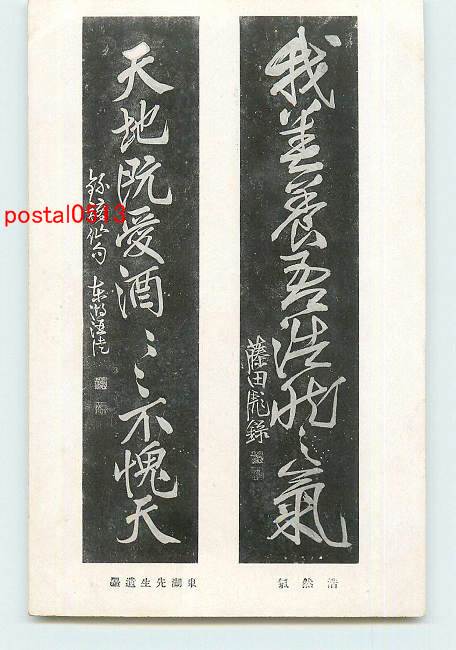 我善養吾浩然之氣
藤田彪錄
天地既愛酒〻〻不愧天
錄古人句
浩然氣
東湖先生遺墨
postal0513